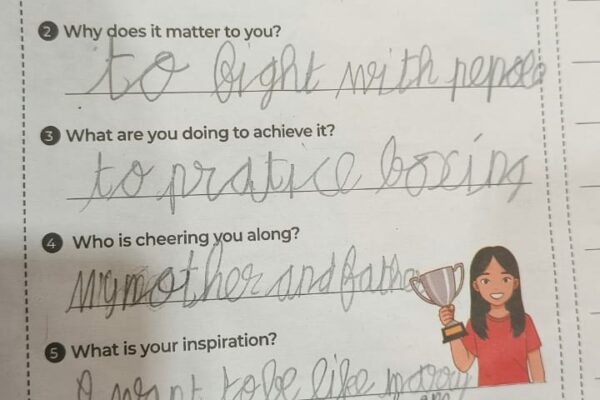 2 Why does it matter to you?
to bight with pepole
3 What are you doing to achieve it?
to pratice boxing
4 Who is cheering you along?
My mother and father
5 What is your inspiration?
I want to be like